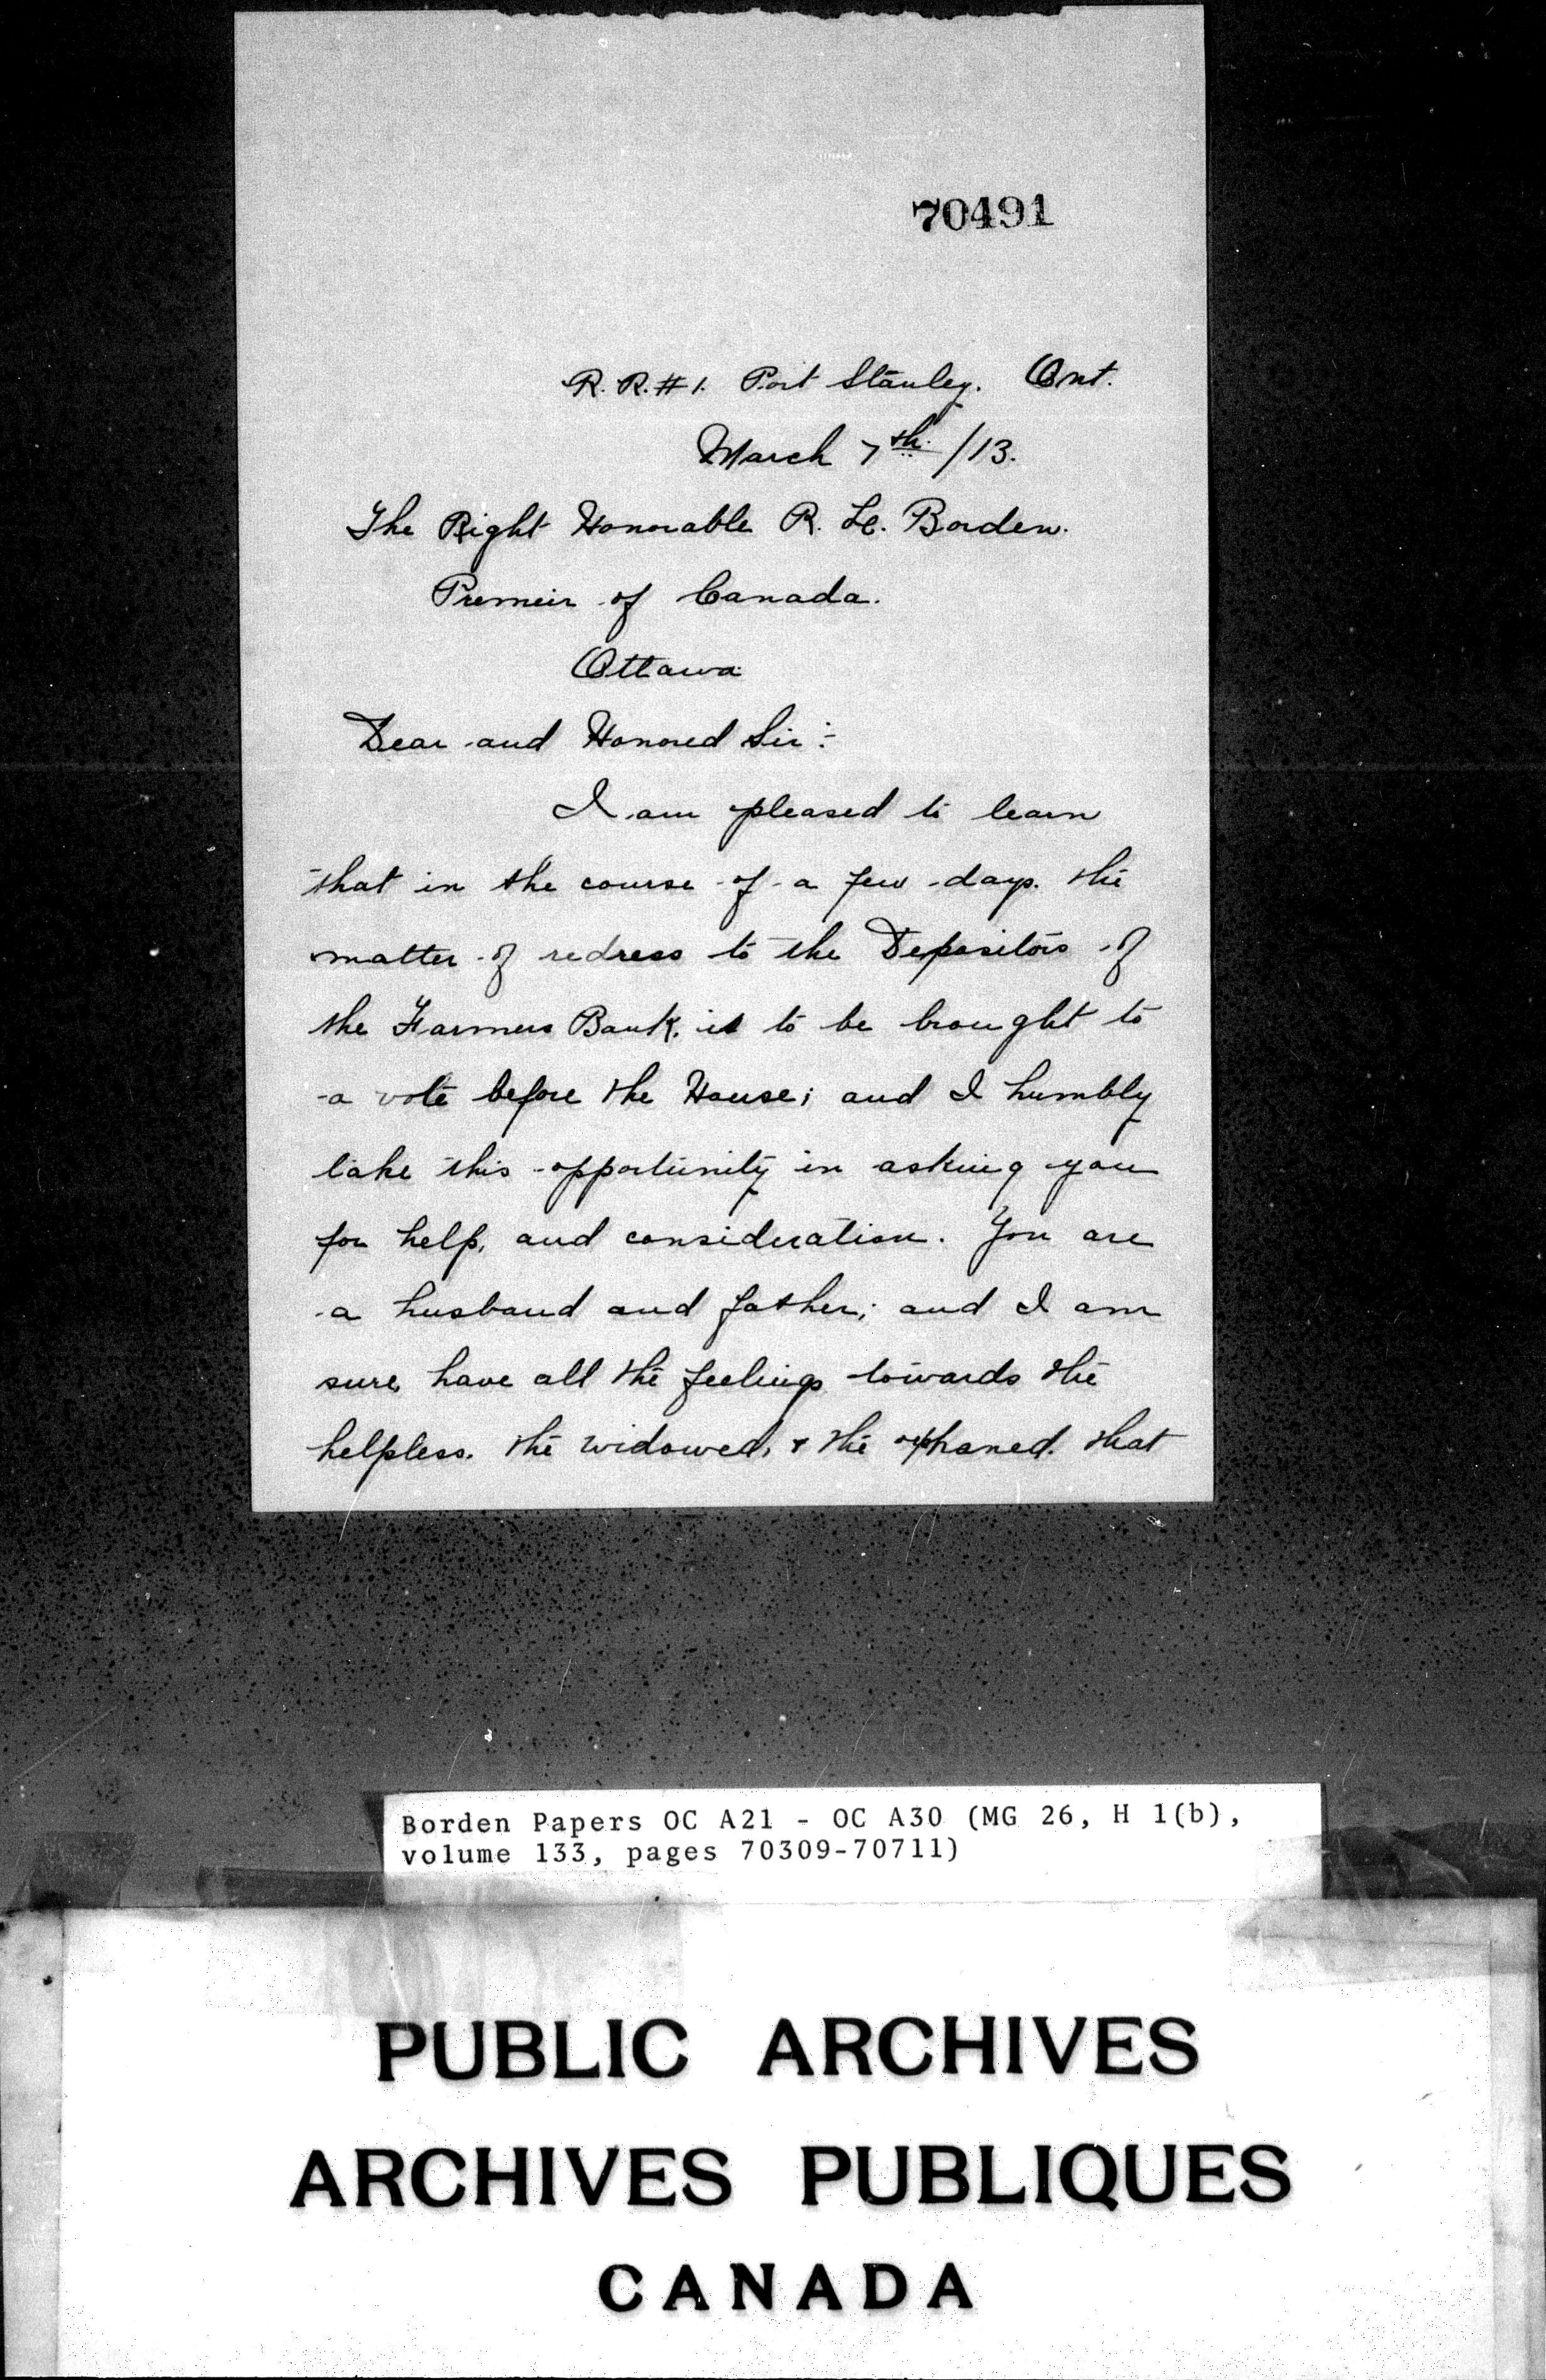 70491
R. R. #1. Port Stanley. Ont.
March 7th. /13.
The Right Honorable R. L. Borden.
Premeir of Canada.
Ottawa
Dear and Honored Sir:-
I am pleased to learn
that in the course of a few days. the
matter of redress to the Depositors of
the Farmers Bank. is to be brought to
a vote before the House; and I humbly
take this opportunity in asking you
for help, and consideration. You are
a husband and father; and I am
sure, have all the feelings towards the
helpless. the widowed, & the orphaned. that
Borden Papers OC A21 - OC A30 (MG 26, H 1(b),
volume 133, pages 70309-70711)
PUBLIC ARCHIVES
ARCHIVES PUBLIQUES
CANADA